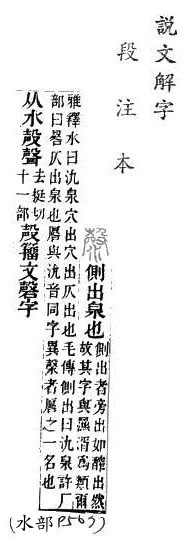 說文解字
段注本
漀
側出泉也
側出者旁出如釃出然
故其字與湑爲類爾
雅釋水曰氿泉穴出穴出仄出也毛傳側出曰氿泉許厂
部曰厬仄出泉也厬與氿音同字異漀者厬之一名也
从水殸聲
去挺切
十一部
殸籒文磬字
(水部P563)